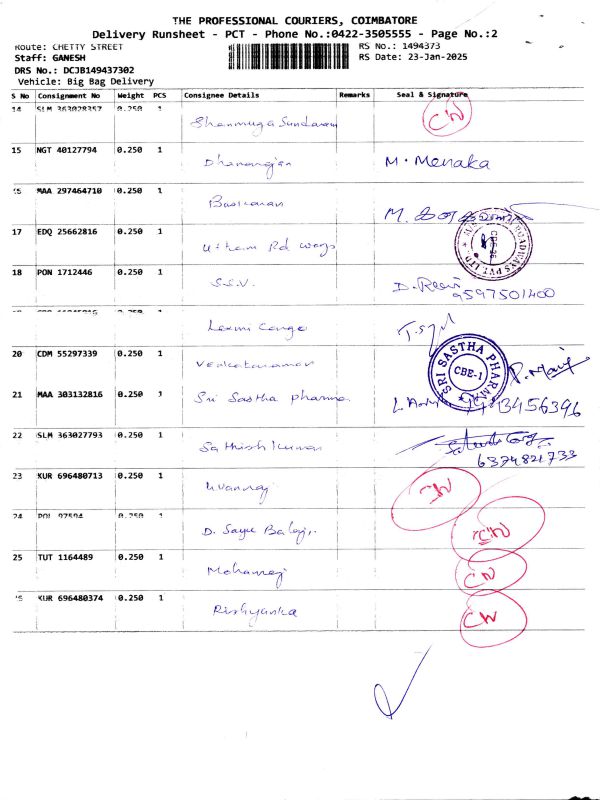 THE PROFESSIONAL COURIERS, COIMBATORE
Delivery Runsheet - PCT - Phone No.:0422-3505555 - Page No.:2
Route: CHETTY STREET RS No.: 1494373
Staff: GANESH RS Date: 23-Jan-2025
DRS No.: DCJB149437302
Vehicle: Big Bag Delivery
S No Consignment No Weight PCS Consignee Details Remarks Seal & Signature
14 SLM 363028357 0.250 1 Shanmuga Sundaram CW
15 NGT 40127794 0.250 1 Dhananjan M. Menaka
MAA 297464710 0.250 1 Baskaran M.
17 EDQ 25662816 0.250 1 ROADWAYS PVT LTD CBE-36
18 PON 1712446 0.250 1 S.S.V. D. 9597501400
0.250 1 Laxmi
20 CDM 55297339 0.250 1 Venkataraman
21 MAA 303132816 0.250 1 Sri Sastha pharma SRI SASTHA PHARMA CBE-1
22 SLM 363027793 0.250 1 Sathish Kumar 6374821733
23 KUR 696480713 0.250 1 Yuvanraj CW
24 POL 97594 0.250 1 D. Balaji CW
25 TUT 1164489 0.250 1 Mohanraj CW
KUR 696480374 0.250 1 Rishyanka CW